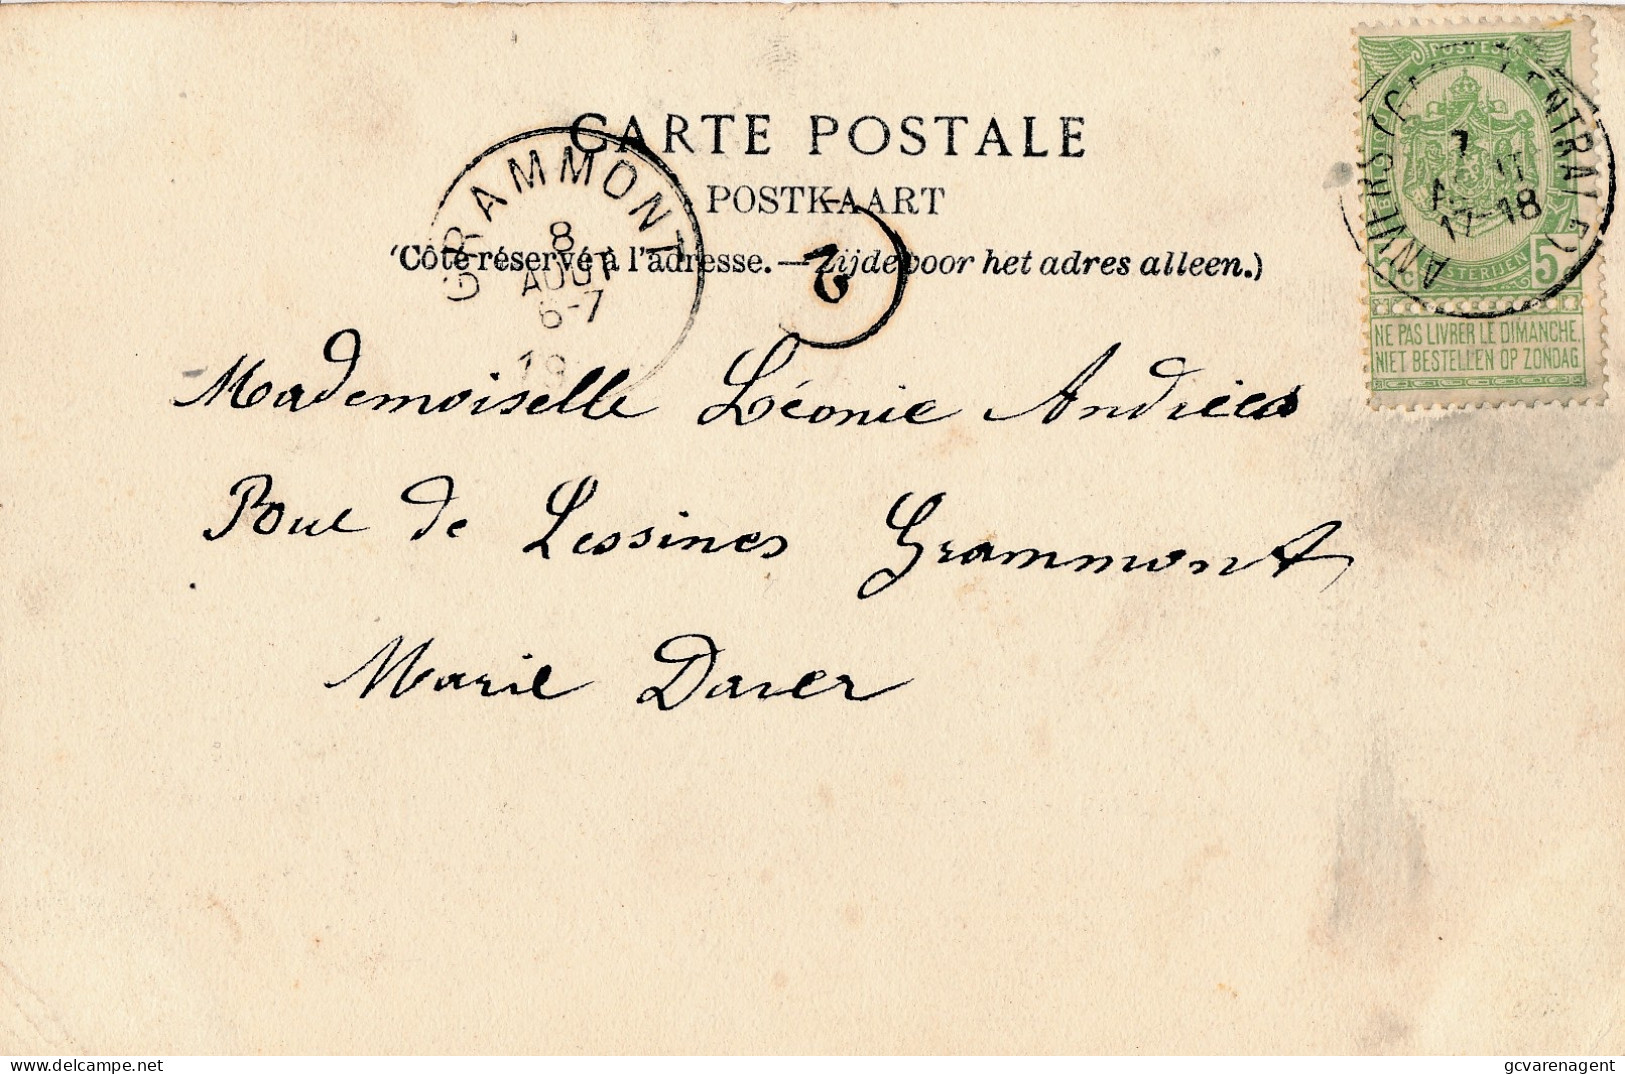 CARTE POSTALE
POSTKAART
(Côté réservé à l'adresse. — Zijde voor het adres alleen.)
GRAMMONT
8
AOUT
6-7
19
2
POSTES
ANVERS (GARE CENTRALE)
7
17-18
5c POSTERIJEN 5c
NE PAS LIVRER LE DIMANCHE.
NIET BESTELLEN OP ZONDAG
Mademoiselle Léonie Andries
Rue de Lessines Grammont
Marie Daver
delcampe.net
gcvarenagent